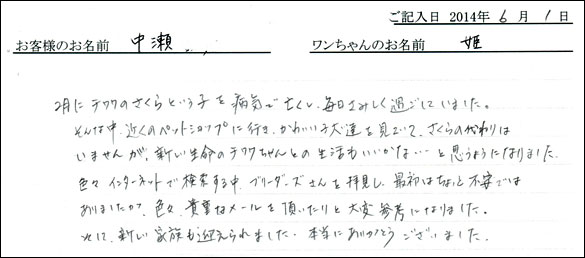 ご記入日 2014年 6月 1日
お客様のお名前 中瀬 ワンちゃんのお名前 姫
2月にチワワのさくらという子を病気で亡くし、毎日さみしく過ごしていました。
そんな中、近くのペットショップに行き、かわいい子犬達を見ていて、さくらの代わりは
いませんが、新しい生命のチワワちゃんとの生活もいいかな…と思うようになりました。
色々インターネットで検索する中、ブリーダーズさんを拝見し、最初はちょっと不安では
ありましたが、色々、貴重なメールを頂いたりと大変参考になりました。
そして、新しい家族も迎えられました。本当にありがとうございました。